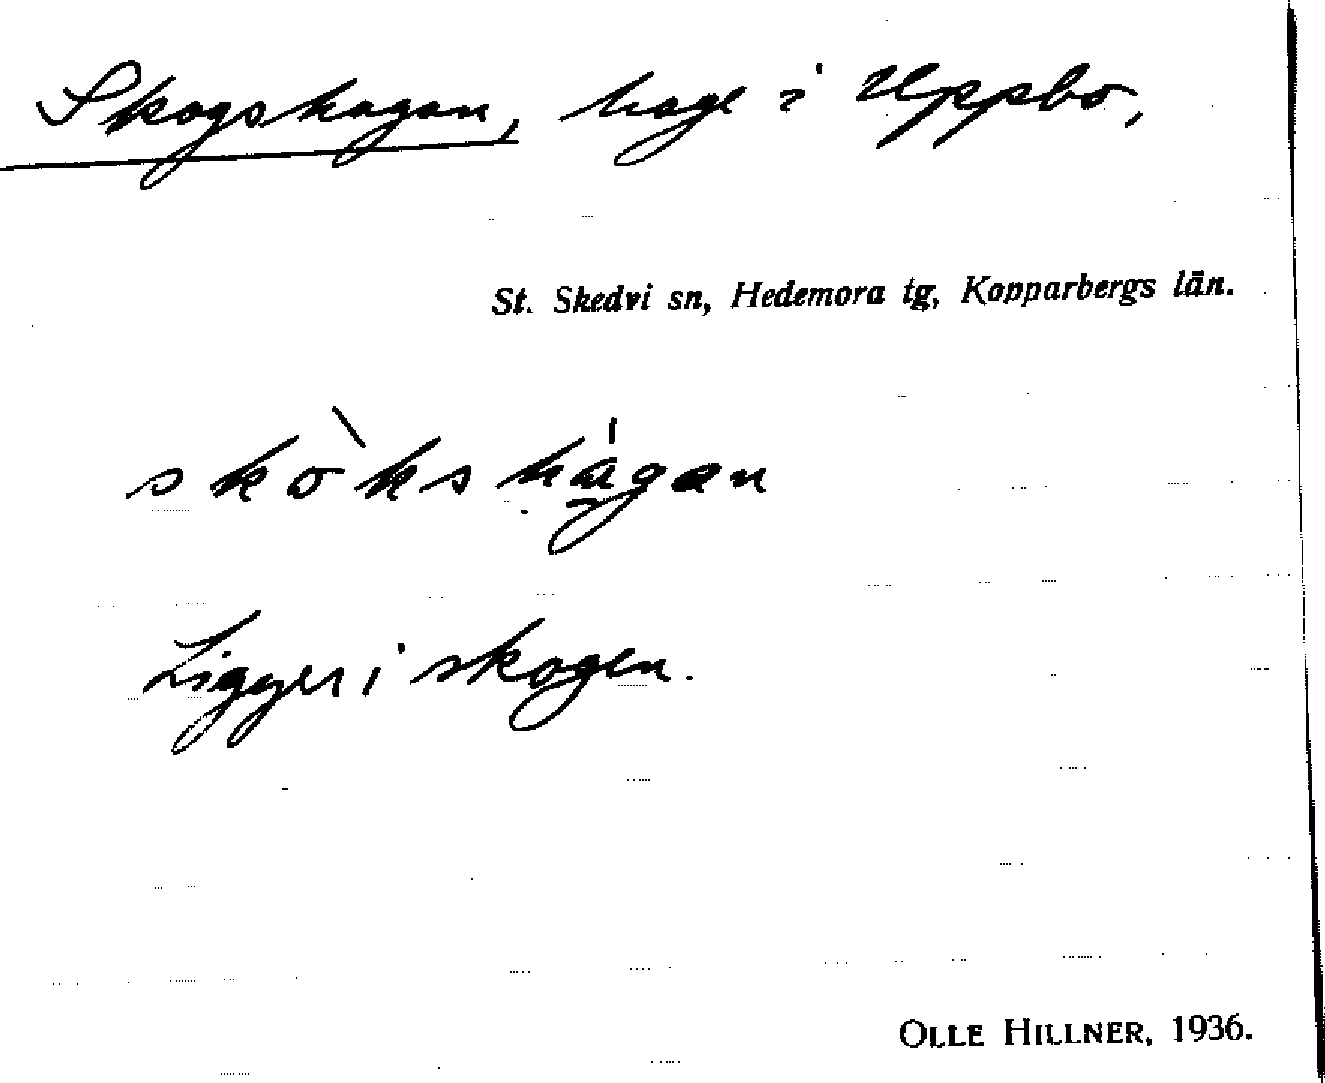 Skogshagan, hage i Uppbo,
St. Skedvi sn, Hedemora tg, Kopparbergs län.
skò̄kshágan
Ligger i skogen.
OLLE HILLNER, 1936.